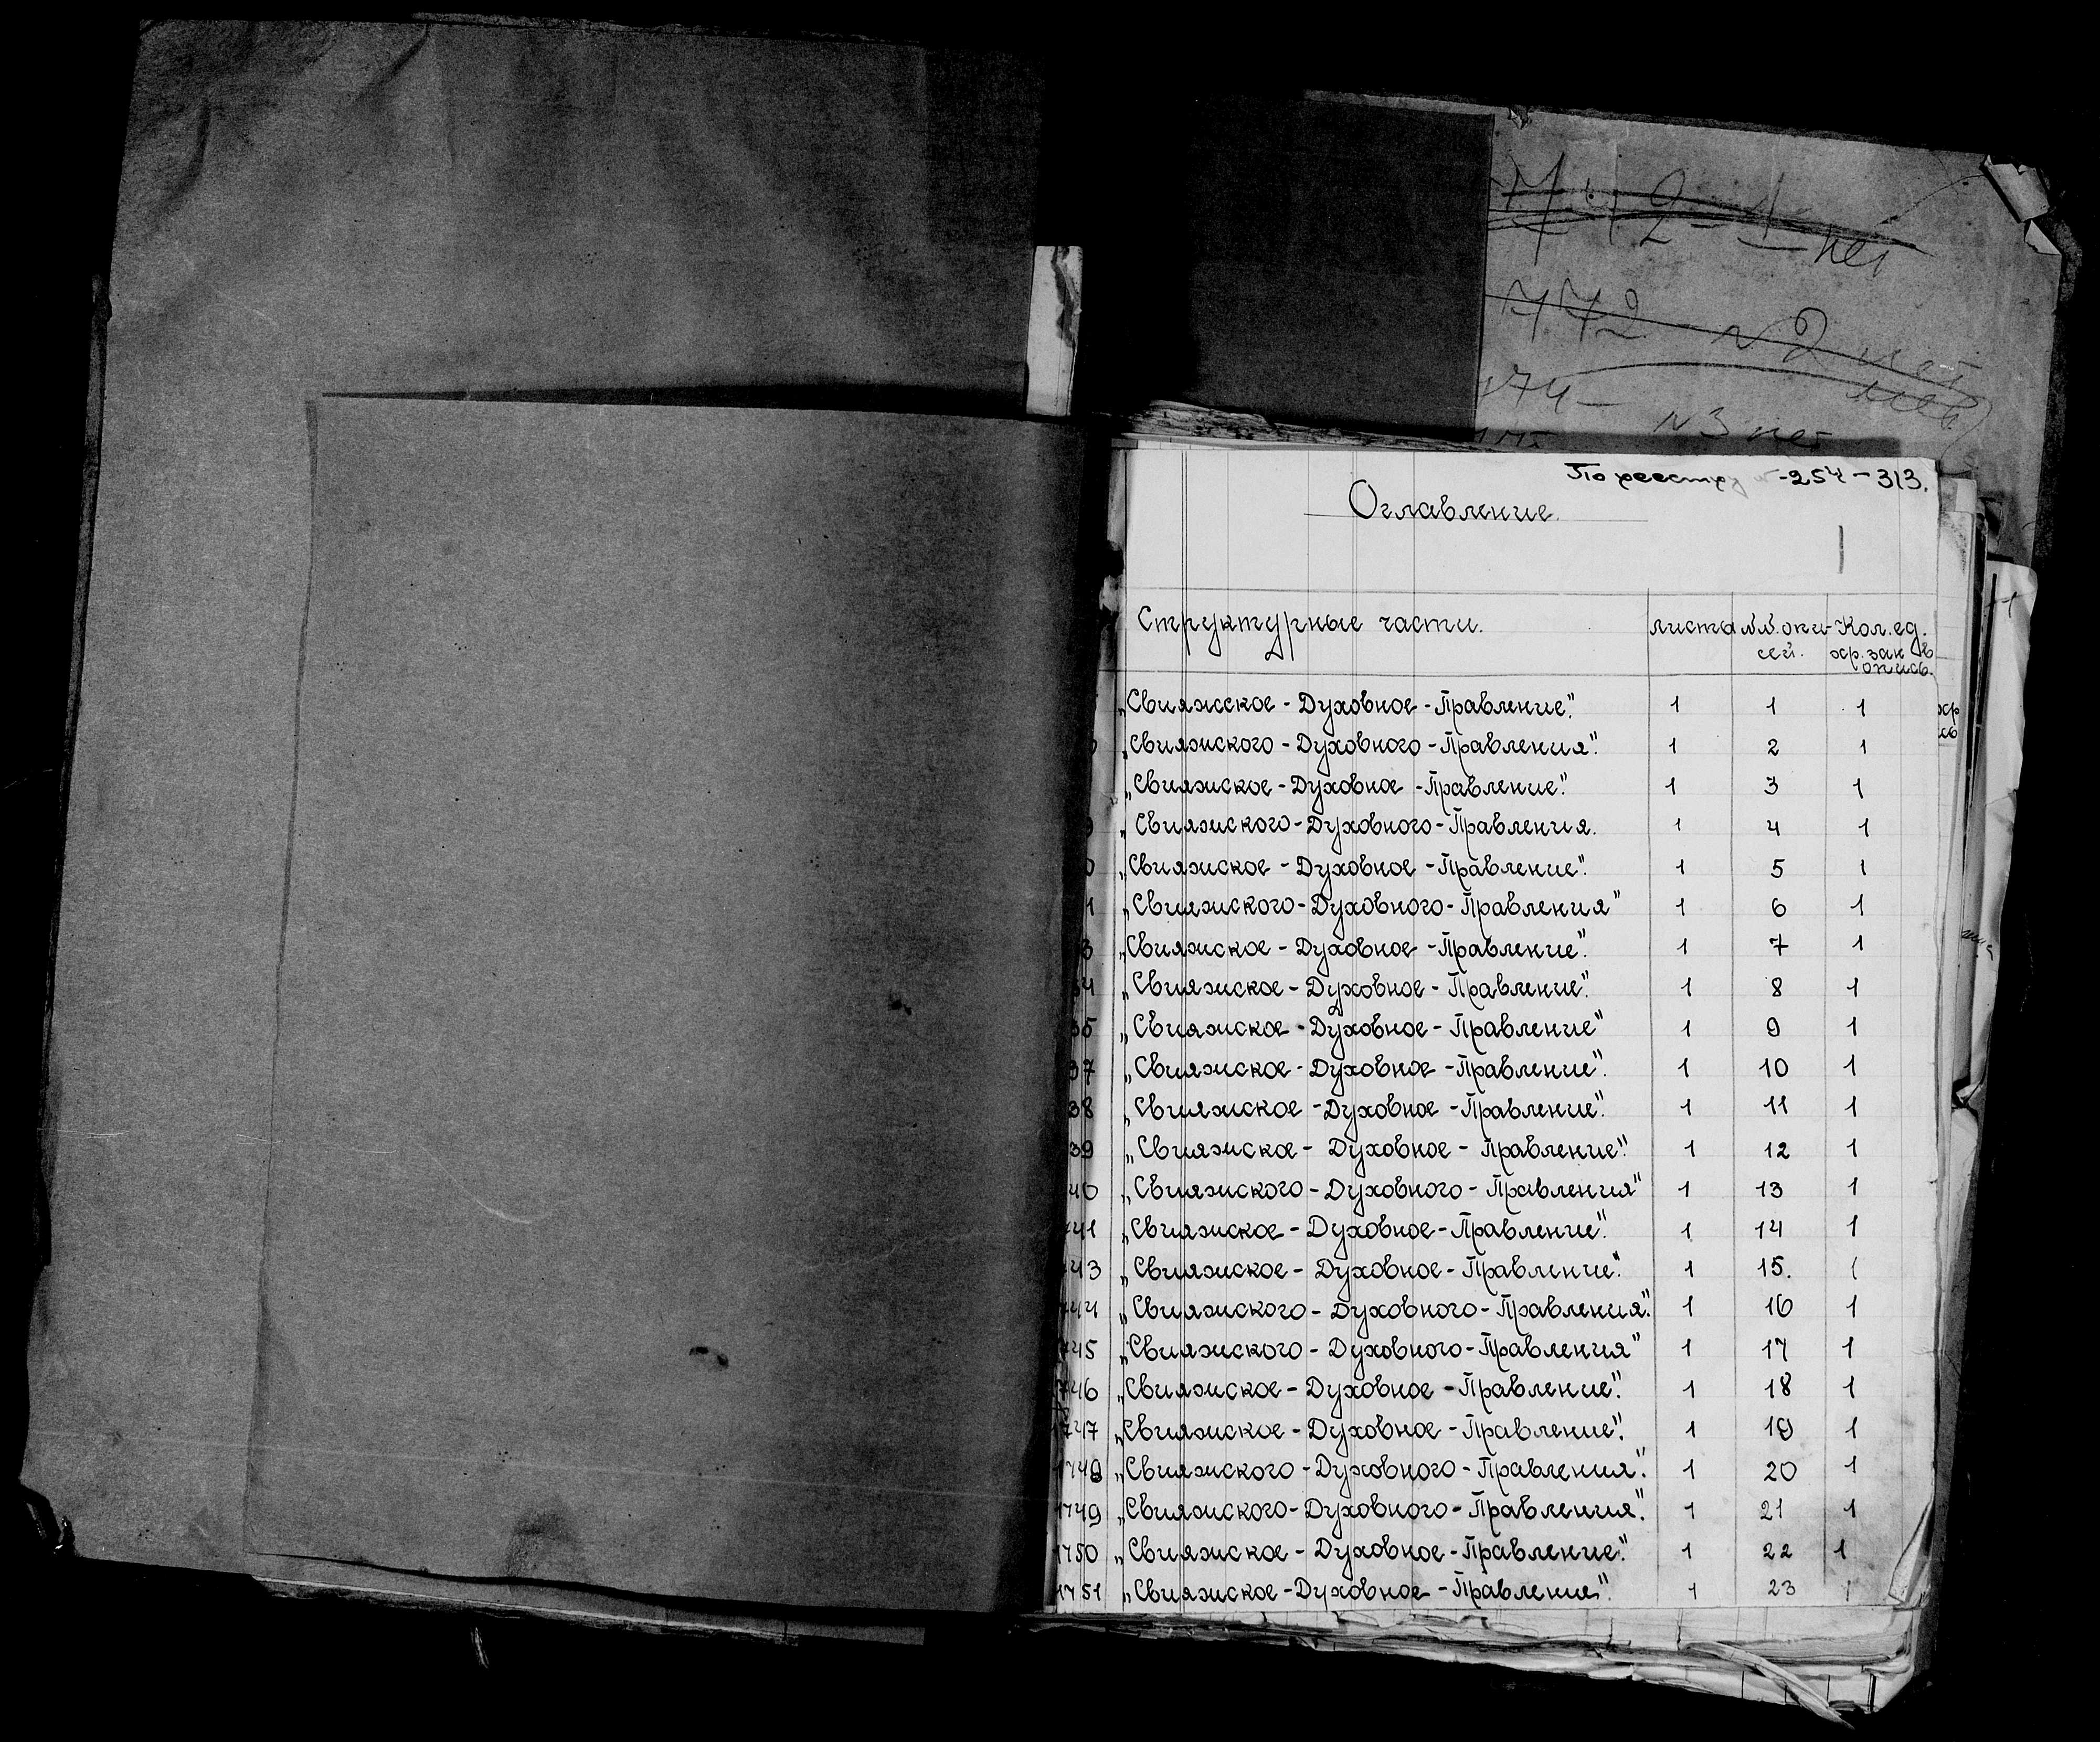 772 - N2 нет
174 -
N3 нет
По реестру -254-313.
Оглавление.
Структурные части. листы №№. опи- Кол. ед.
сей. хр. зак в
опись.
„Свияжское - Духовное - Правление". 1 1 1
„Свияжского - Духовного - Правления". 1 2 1
„Свияжское - Духовное - Правление". 1 3 1
„Свияжского - Духовного - Правления. 1 4 1
„Свияжское - Духовное - Правление". 1 5 1
1 „Свияжского - Духовного - Правления" 1 6 1
3 „Свияжское - Духовное - Правление". 1 7 1
34 „Свияжское - Духовное - Правление". 1 8 1
35 „Свияжское - Духовное - Правление" 1 9 1
37 „Свияжское - Духовное - Правление". 1 10 1
38 „Свияжское - Духовное - Правление". 1 11 1
39 „Свияжское - Духовное - Правление". 1 12 1
40 „Свияжского - Духовного - Правления" 1 13 1
741 „Свияжское - Духовное - Правление". 1 14 1
743 „Свияжское - Духовное - Правление". 1 15. 1
744 „Свияжского - Духовного - Правления". 1 16 1
745 „Свияжского - Духовного - Правления" 1 17 1
746 „Свияжское - Духовное - Правление". 1 18 1
1747 „Свияжское - Духовное - Правление". 1 19 1
1748 „Свияжского - Духовного - Правления". 1 20 1
1749 „Свияжского - Духовного - Правления". 1 21 1
1750 „Свияжское - Духовное - Правление". 1 22 1
1751 „Свияжское - Духовное - Правление". 1 23 1